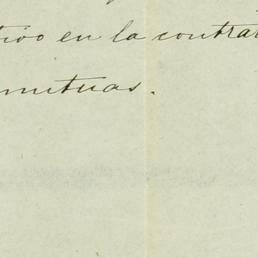 en la contra
mutuas.